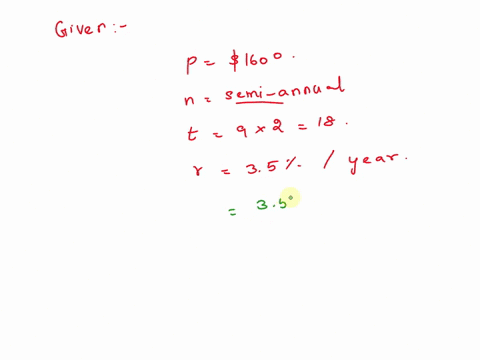 Given:-
P = $1600.
n = semi-annual
t = 9 x 2 = 18.
r = 3.5% / year.
= 3.5